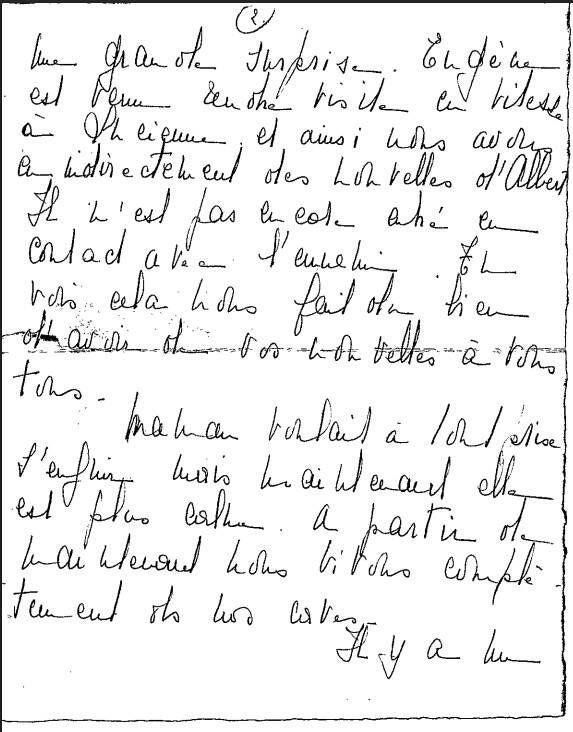 2.
une grande surprise. Eugène
est venu rendre visite en vitesse
à Etienne, et ainsi nous avons
eu indirectement des nouvelles d'Albert
Il n'est pas encore entré en
contact avec l'ennemi. Tu
vois cela nous fait du bien
d'avoir de vos nouvelles à vous
tous.
Maman voulait à tout prise
s'enfuir mais maintenant elle
est plus calme. A partir de
maintenant nous vivons complè-
tement ds nos caves.
Il y a un